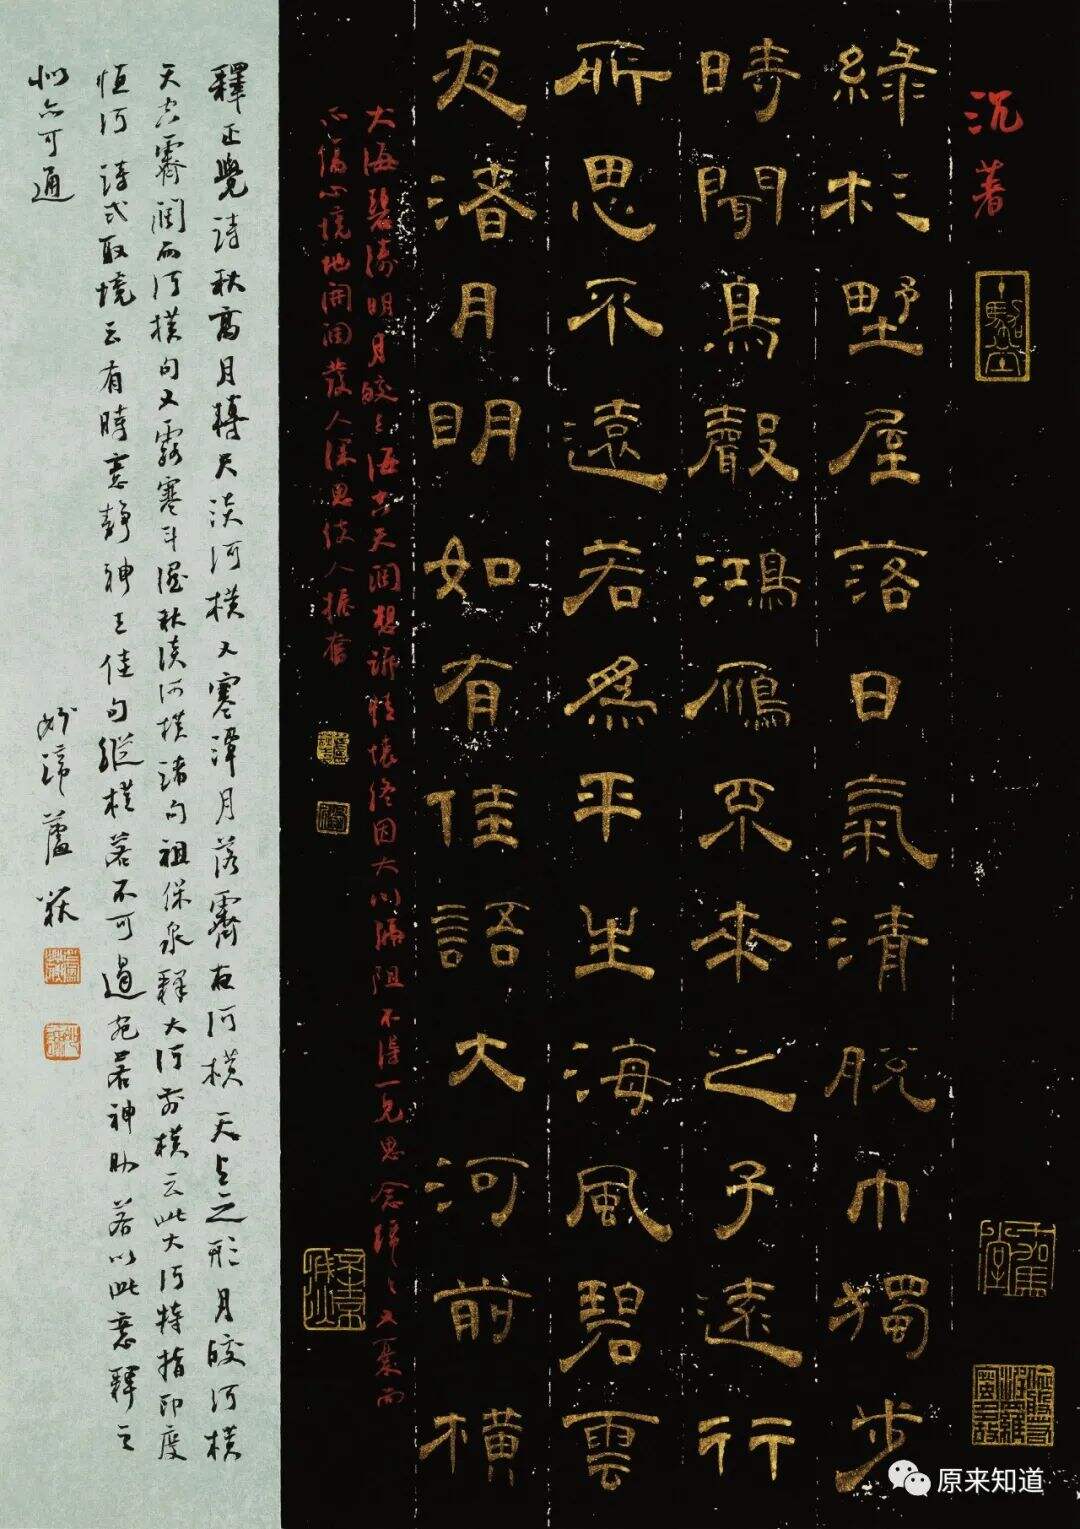 沉著
綠杉野屋落日氣清脫巾獨步
時聞鳥聲鴻雁不來之子遠行
所思不遠若為平生海風碧雲
夜渚月明如有佳語大河前橫
大海碧濤明月皎皎海空天闊想訴情懷終因大川隔阻不得一見思念殫殫文豪而
心傷心境地開闊發人深思使人振奮
釋正覺詩秋高月轉天淡河橫又寒潭月落霽夜河橫天上之形月皎河橫
天空霽闊而河橫句又霧寒斗濕秋淡河橫諸句祖保泉釋大河前橫云此大河特指印度
恒河詩式取境云有時意靜神王佳句縱橫若不可遏宛若神助若以此意釋之
似亦可通
妙諦蘆荻
原来知道